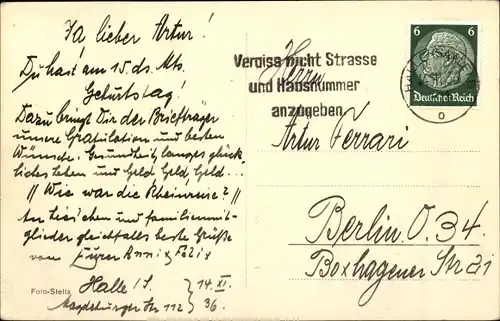 Ja lieber Artur!
Du hast am 15. ds. Mts.
Geburtstag!
Dazu bringt Dir der Briefträger
unsere Gratulation und besten
Wünsche. Gesundheit, langes glück-
liches Leben und Geld, Geld, Geld...
"Wie war die Rheinreise?"
An Lies'chen und Familienmit-
glieder gleichfalls beste Grüße
von Euren Anni & Felix
Halle /S. 14. XI.
Magdeburger Str 112 36.
Foto-Stella
Vergiss nicht Strasse
und Hausnummer
anzugeben
6 6
Deutsches Reich
HALLE (SAALE)
Herrn
Artur Ferrari
Berlin O. 34
Boxhagener Str 21